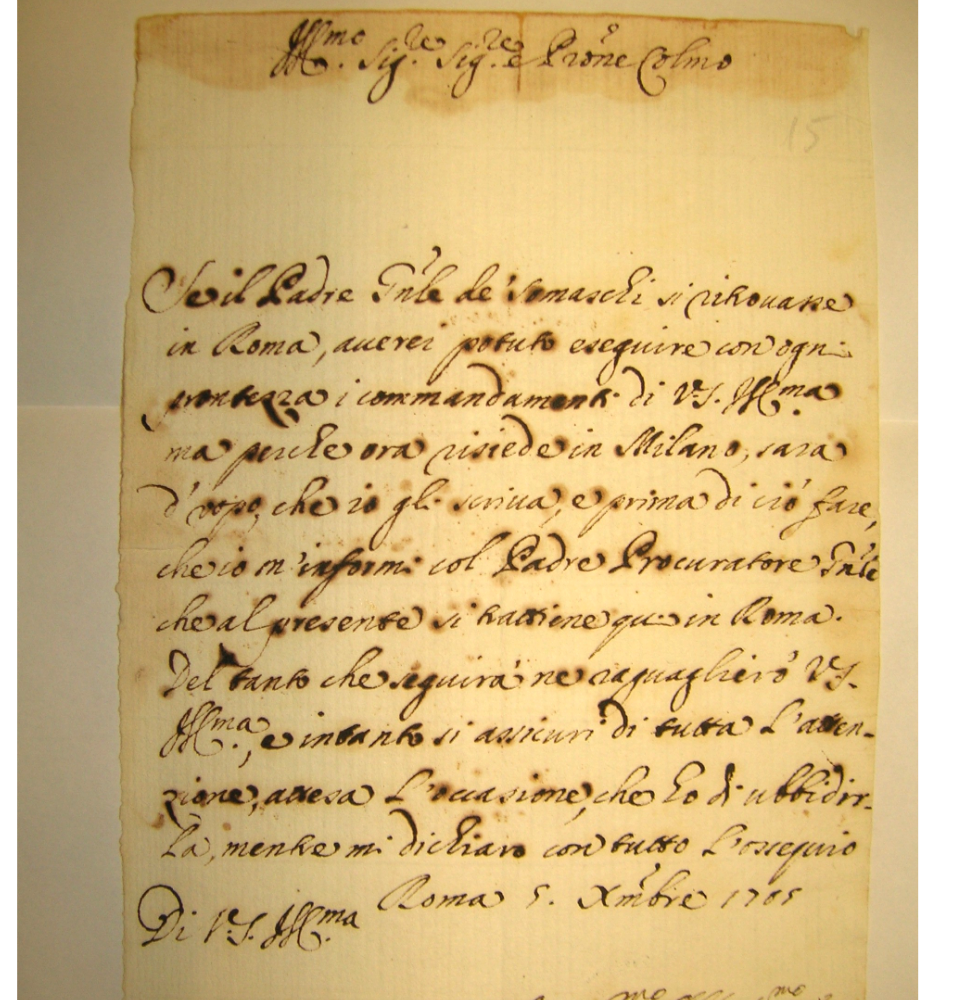 Ill.mo Sig.re Sig.re e Pròne Colmo
15
Se il Padre Gn̄le de' Somaschi si ritrovasse
in Roma, averei potuto eseguire con ogni
prontezza i commandamenti di V.S. Ill.ma
ma perche ora risiede in Milano, sara
d'vopo, che io gli scriva, e prima di ciò fare,
che io m'informi col Padre Procuratore Gn̄le
che al presente si trattiene qui in Roma.
Del tanto che seguirà ne raguaglierò V.S.
Ill.ma, e intanto si assicuri di tutta l'atten-
zione, attesa l'occasione, che ho di ubbidir-
la, mentre mi dichiaro con tutto l'ossequio
Di V.S. Ill.ma Roma 5. Xm̄bre 1705